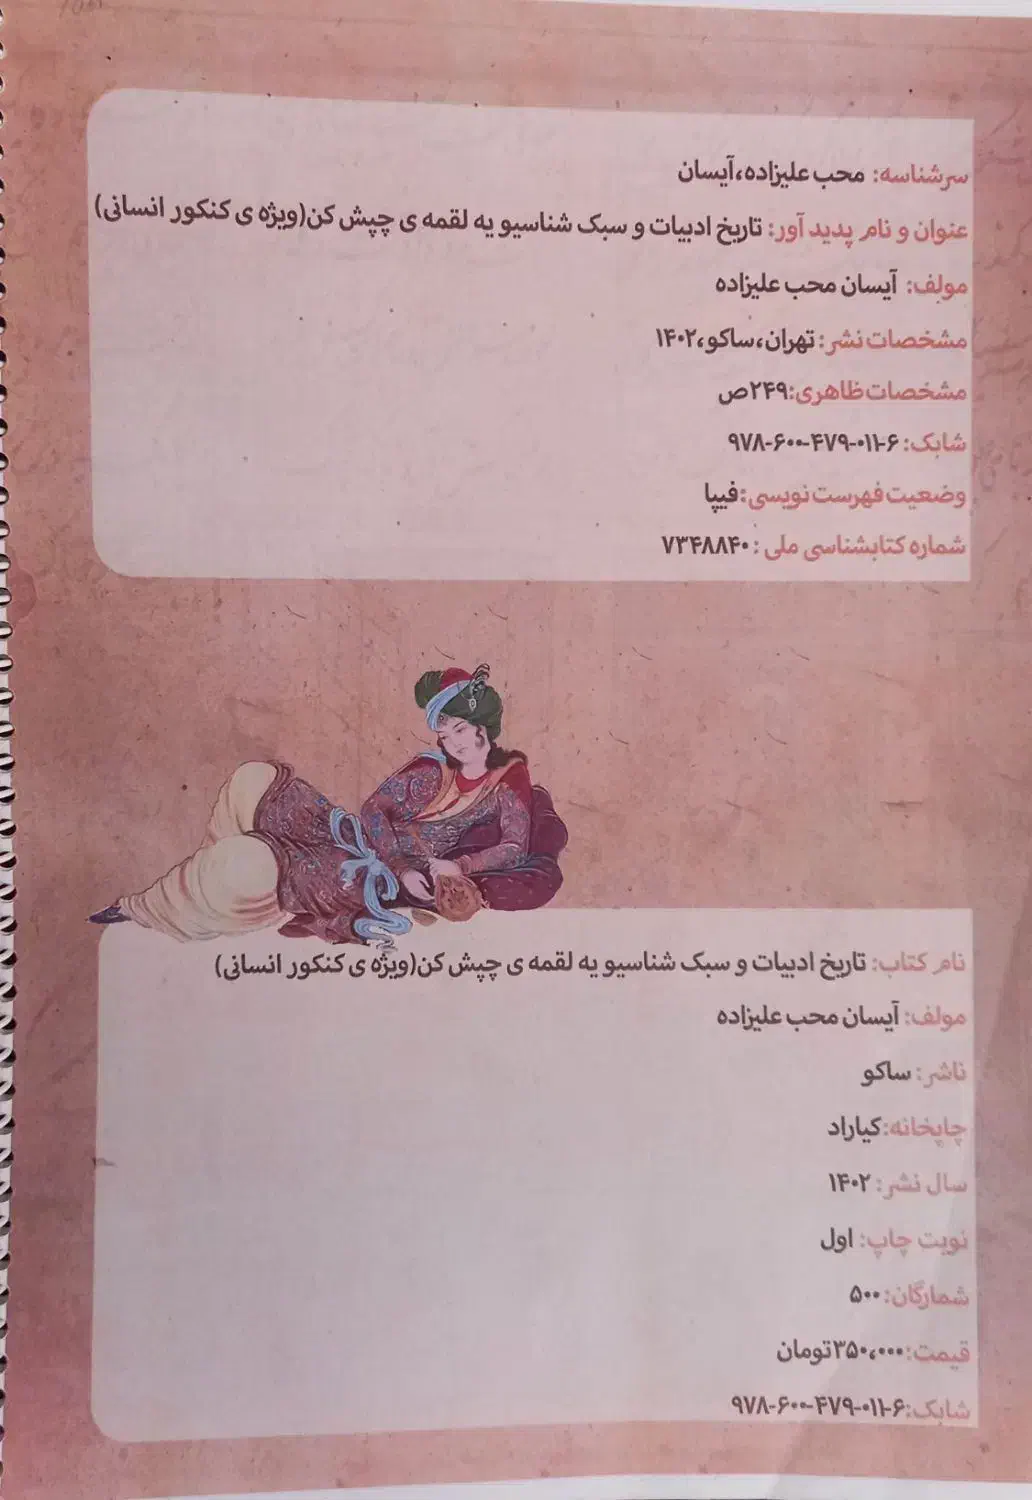 سرشناسه: محب علیزاده،آیسان
عنوان و نام پدید آور: تاریخ ادبیات و سبک شناسیو یه لقمه ی چپش کن(ویژه ی کنکور انسانی)
مولف: آیسان محب علیزاده
مشخصات نشر: تهران،ساکو،۱۴۰۲
مشخصات ظاهری:۲۴۹ص
شابک: ۹۷۸-۶۰۰-۴۷۹-۰۱۱-۶
وضعیت فهرست نویسی:فیپا
شماره کتابشناسی ملی : ۷۳۴۸۸۴۰
نام کتاب: تاریخ ادبیات و سبک شناسیو یه لقمه ی چپش کن(ویژه ی کنکور انسانی)
مولف: آیسان محب علیزاده
ناشر: ساکو
چاپخانه:کیاراد
سال نشر: ۱۴۰۲
نوبت چاپ: اول
شمارگان: ۵۰۰
قیمت:۳۵۰،۰۰۰تومان
شابک:۹۷۸-۶۰۰-۴۷۹-۰۱۱-۶